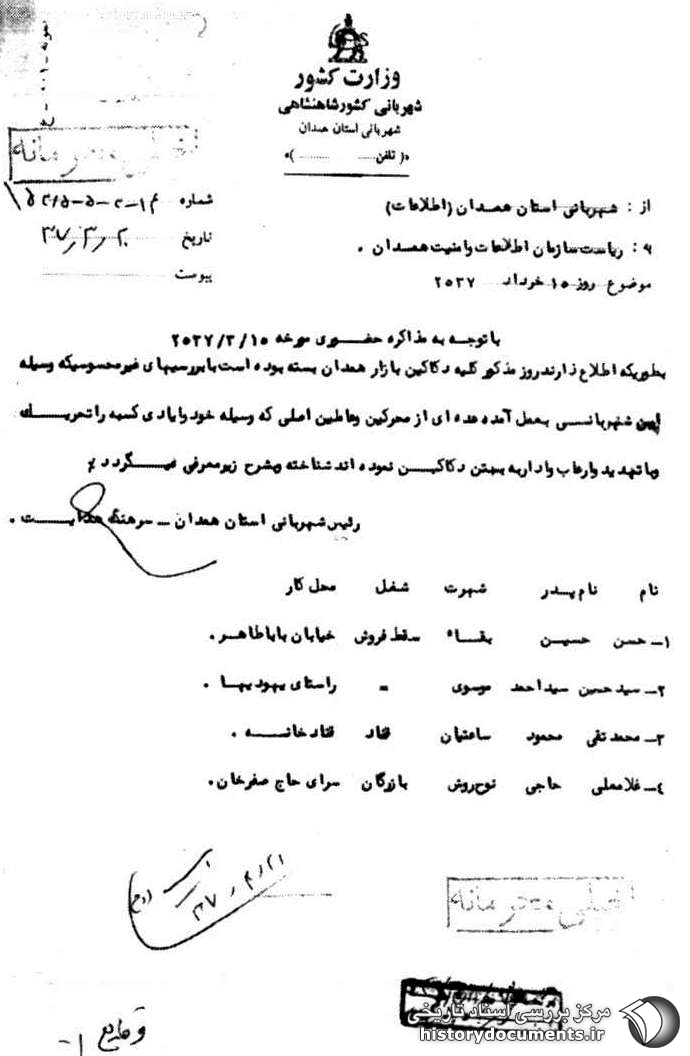 وزارت کشور
شهربانی کشور شاهنشاهی
شهربانی استان همدان
«( تلفن ........ )»
خیلی محرمانه
شماره
تاریخ ۳۷٫۳٫۲۰
پیوست
از : شهربانی استان همدان (اطلاعات)
به : ریاست سازمان اطلاعات و امنیت همدان .
موضوع روز ۱۵ خرداد ۲۵۳۷
با توجه به مذاکره حضوری مورخه ۲۵۳۷/۳/۱۵
بطوریکه اطلاع دارند روز مذکور کلیه دکاکین بازار همدان بسته بوده است با بررسیهای غیرمحسوسیکه وسیله
این شهربانی بعمل آمده عده ای از محرکین و عاملین اصلی که وسیله خود و ایادی کسبه را تحریک
و با تهدید و ارعاب وادار به بستن دکاکین نموده اند شناخته و بشرح زیر معرفی میگردد
رئیس شهربانی استان همدان ـ سرهنگ هدایت .
نام نام پدر شهرت شغل محل کار
۱ـ حسن حسین بقاء سقط فروش خیابان باباطاهر.
۲ـ سید حسین سید احمد موسوی = راستای یهودیها .
۳ـ محمد تقی محمود ساعتیان قناد قناد خانه .
۴ـ غلامعلی حاجی نوح‌روش بازرگان سرای حاج صفرخان.
۳۷٫۳٫۲۱
خیلی محرمانه
وقایع
مرکز بررسی اسناد تاریخی
historydocuments.ir